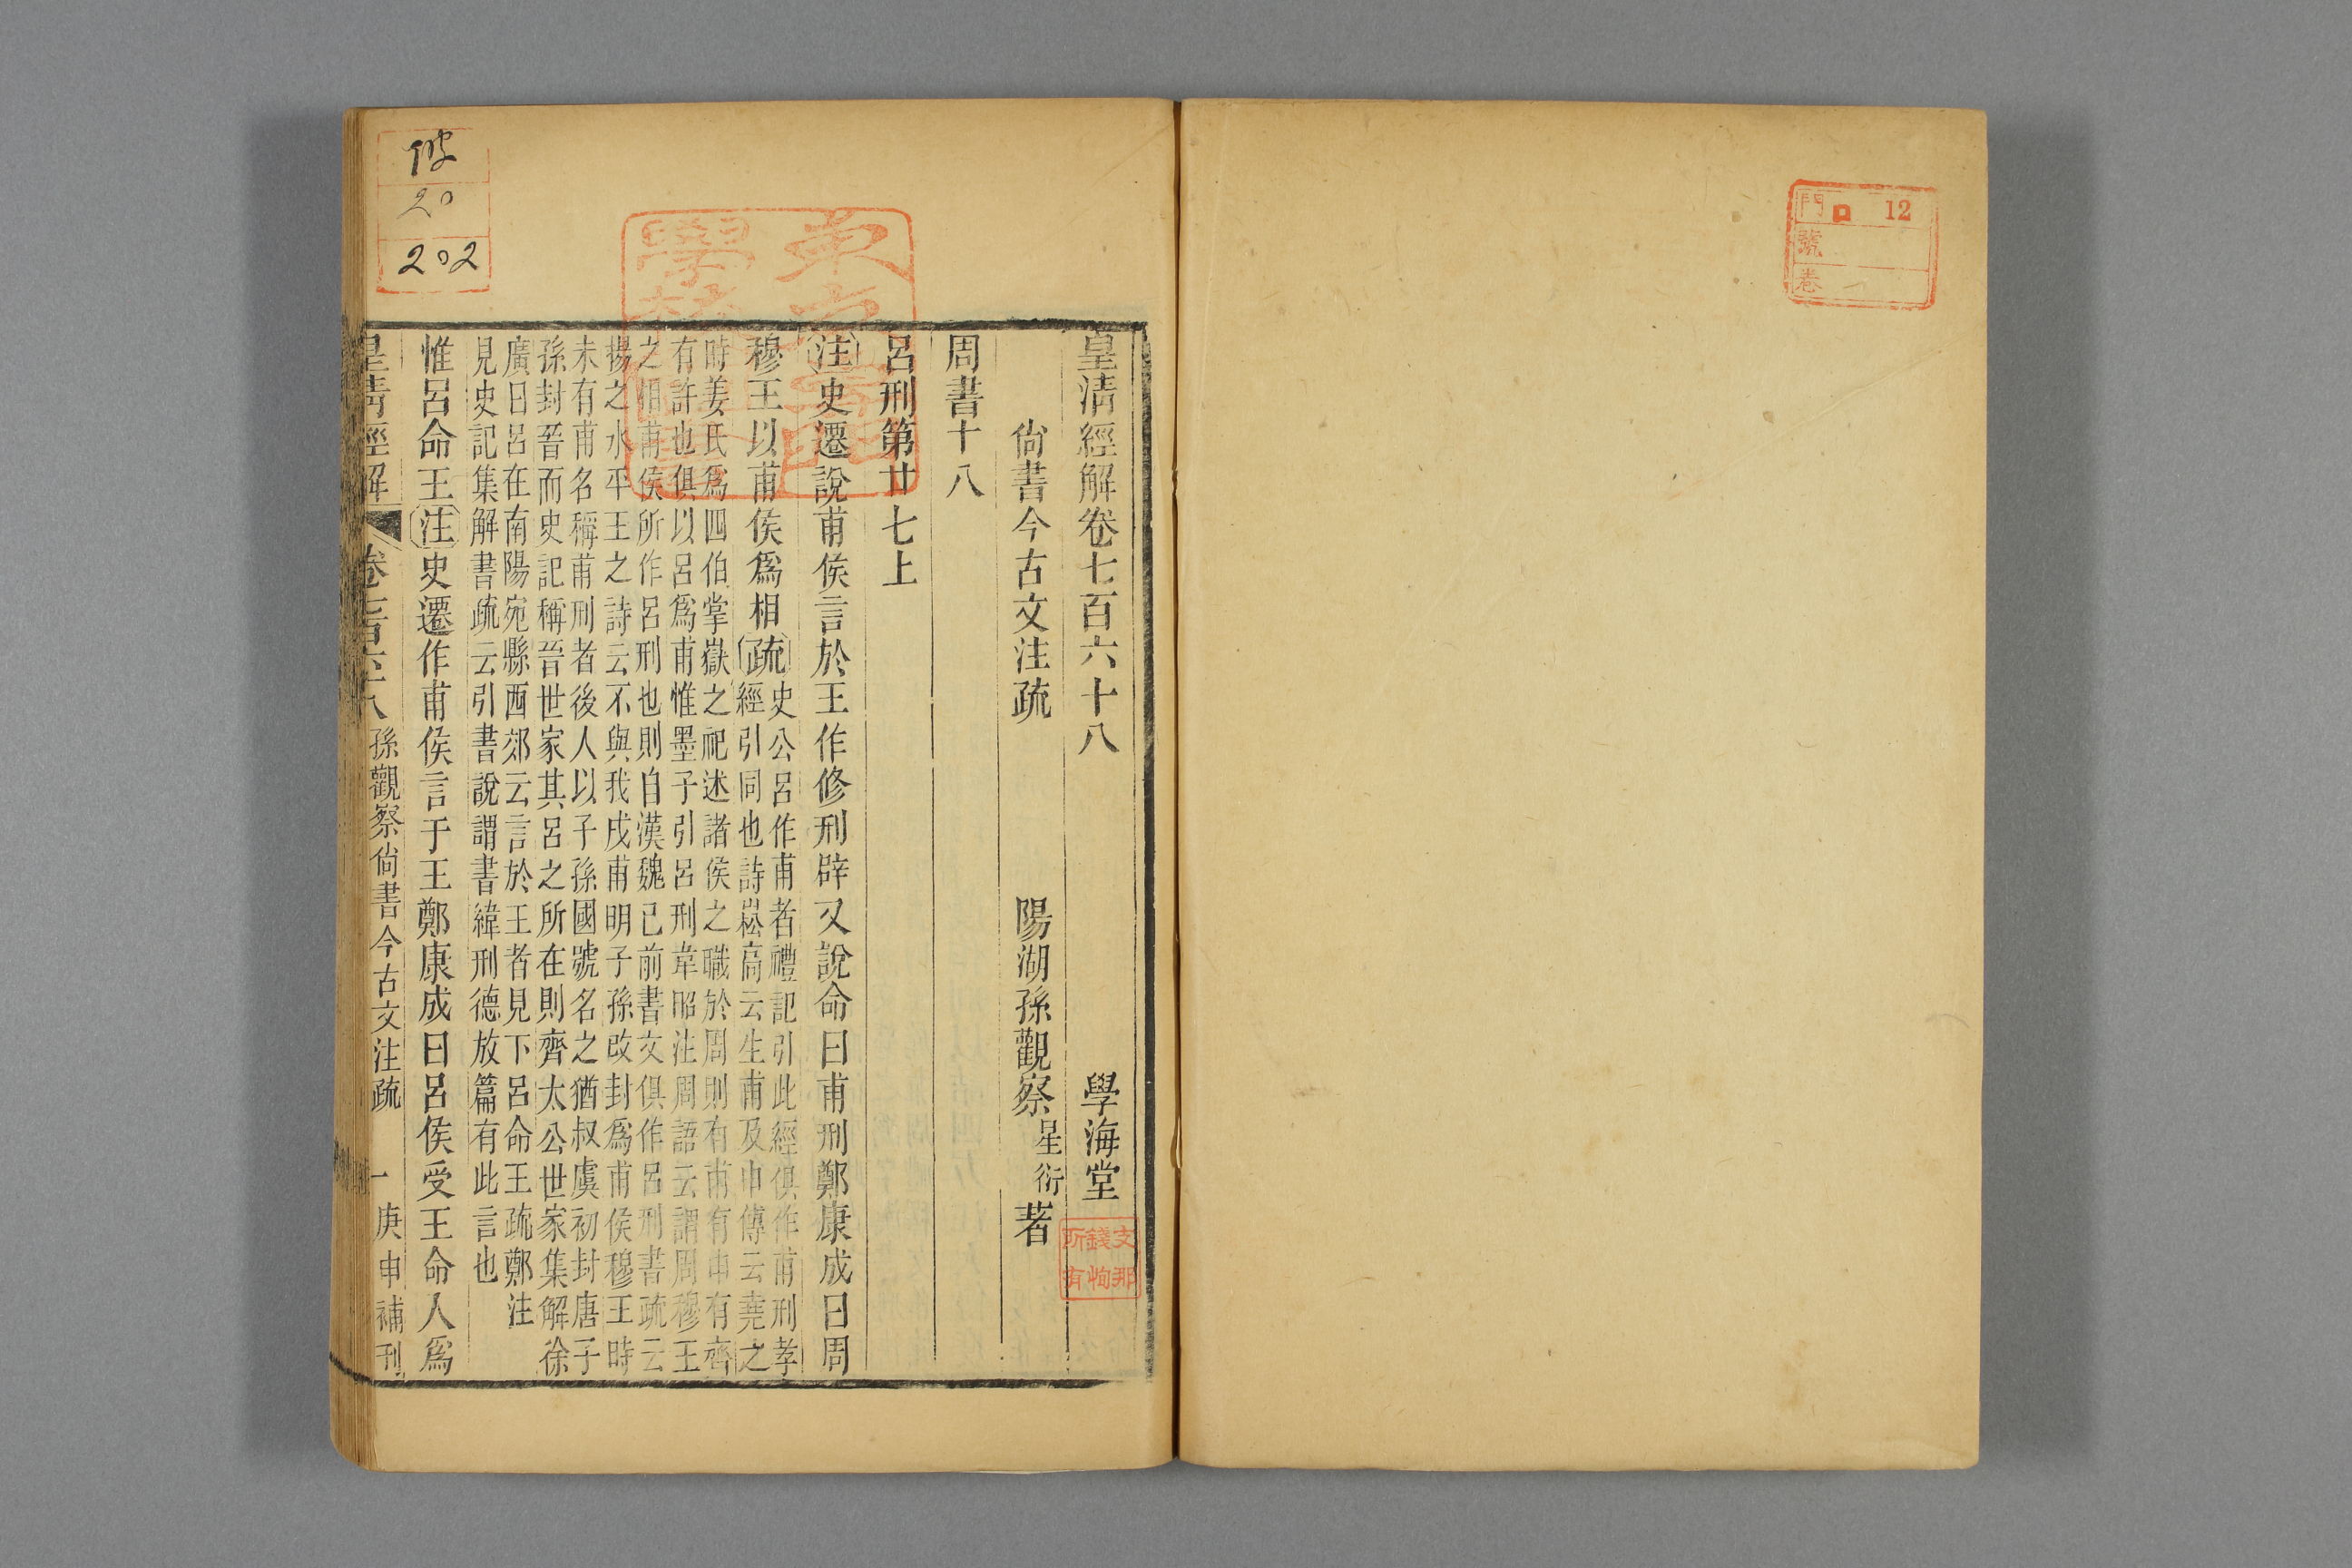 門 ロ 12
號
卷
皇清經解卷七百六十八 學海堂
尙書今古文注疏 陽湖孫觀察星衍著
周書十八
呂刑第廿七上
注史遷說甫侯言於王作修刑辟又說命曰甫刑鄭康成曰周
穆王以甫侯爲相疏史公呂作甫者禮記引此經俱作甫刑孝
經引同也詩崧高云生甫及申傳云堯之
時姜氏爲四伯掌嶽之祀述諸侯之職於周則有甫有申有齊
有許也俱以呂爲甫惟墨子引呂刑韋昭注周語云謂周穆王
之相甫侯所作呂刑也則自漢魏已前書文俱作呂刑書疏云
揚之水平王之詩云不與我戍甫明子孫改封爲甫侯穆王時
未有甫名稱甫刑者後人以子孫國號名之猶叔虞初封唐子
孫封晉而史記稱晉世家其呂之所在則齊太公世家集解徐
廣曰呂在南陽宛縣西郊云言於王者見下呂命王疏鄭注
見史記集解書疏云引書說謂書緯刑德放篇有此言也
惟呂命王注史遷作甫侯言于王鄭康成曰呂侯受王命人爲
皇清經解 卷七百六十八 孫觀察尙書今古文注疏 一 庚申補刊
支那
錢恂
所有
20
202